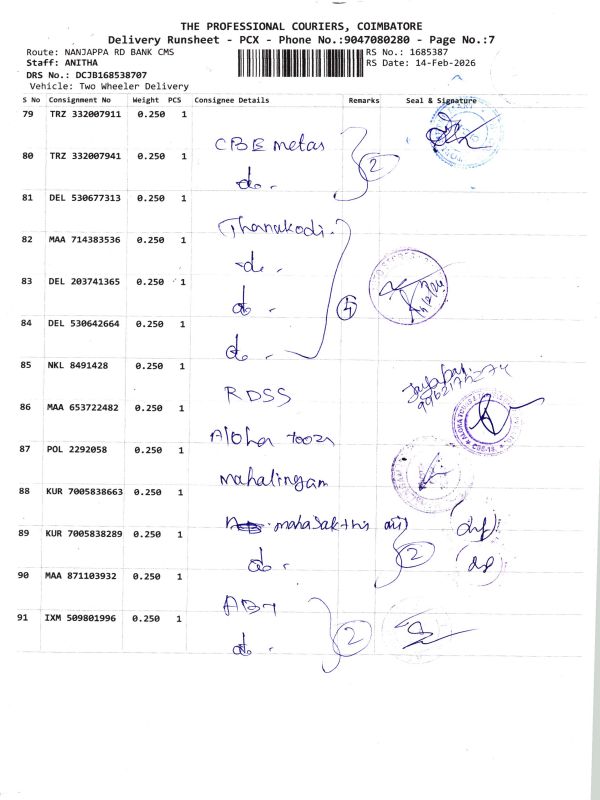 THE PROFESSIONAL COURIERS, COIMBATORE
Delivery Runsheet - PCX - Phone No.:9047080280 - Page No.:7
Route: NANJAPPA RD BANK CMS
RS No.: 1685387
Staff: ANITHA
RS Date: 14-Feb-2026
DRS No.: DCJB168538707
Vehicle: Two Wheeler Delivery
S No Consignment No Weight PCS Consignee Details Remarks Seal & Signature
79 TRZ 332007911 0.250 1
CBE metas
80 TRZ 332007941 0.250 1
2
do.
81 DEL 530677313 0.250 1
Thanukodi.
82 MAA 714383536 0.250 1
do.
83 DEL 203741365 0.250 1
do.
84 DEL 530642664 0.250 1
do.
85 NKL 8491428 0.250 1
RDSS
86 MAA 653722482 0.250 1
Aloha
87 POL 2292058 0.250 1
mahalingam
88 KUR 7005838663 0.250 1
89 KUR 7005838289 0.250 1
2
do.
90 MAA 871103932 0.250 1
91 IXM 509801996 0.250 1
2
do.